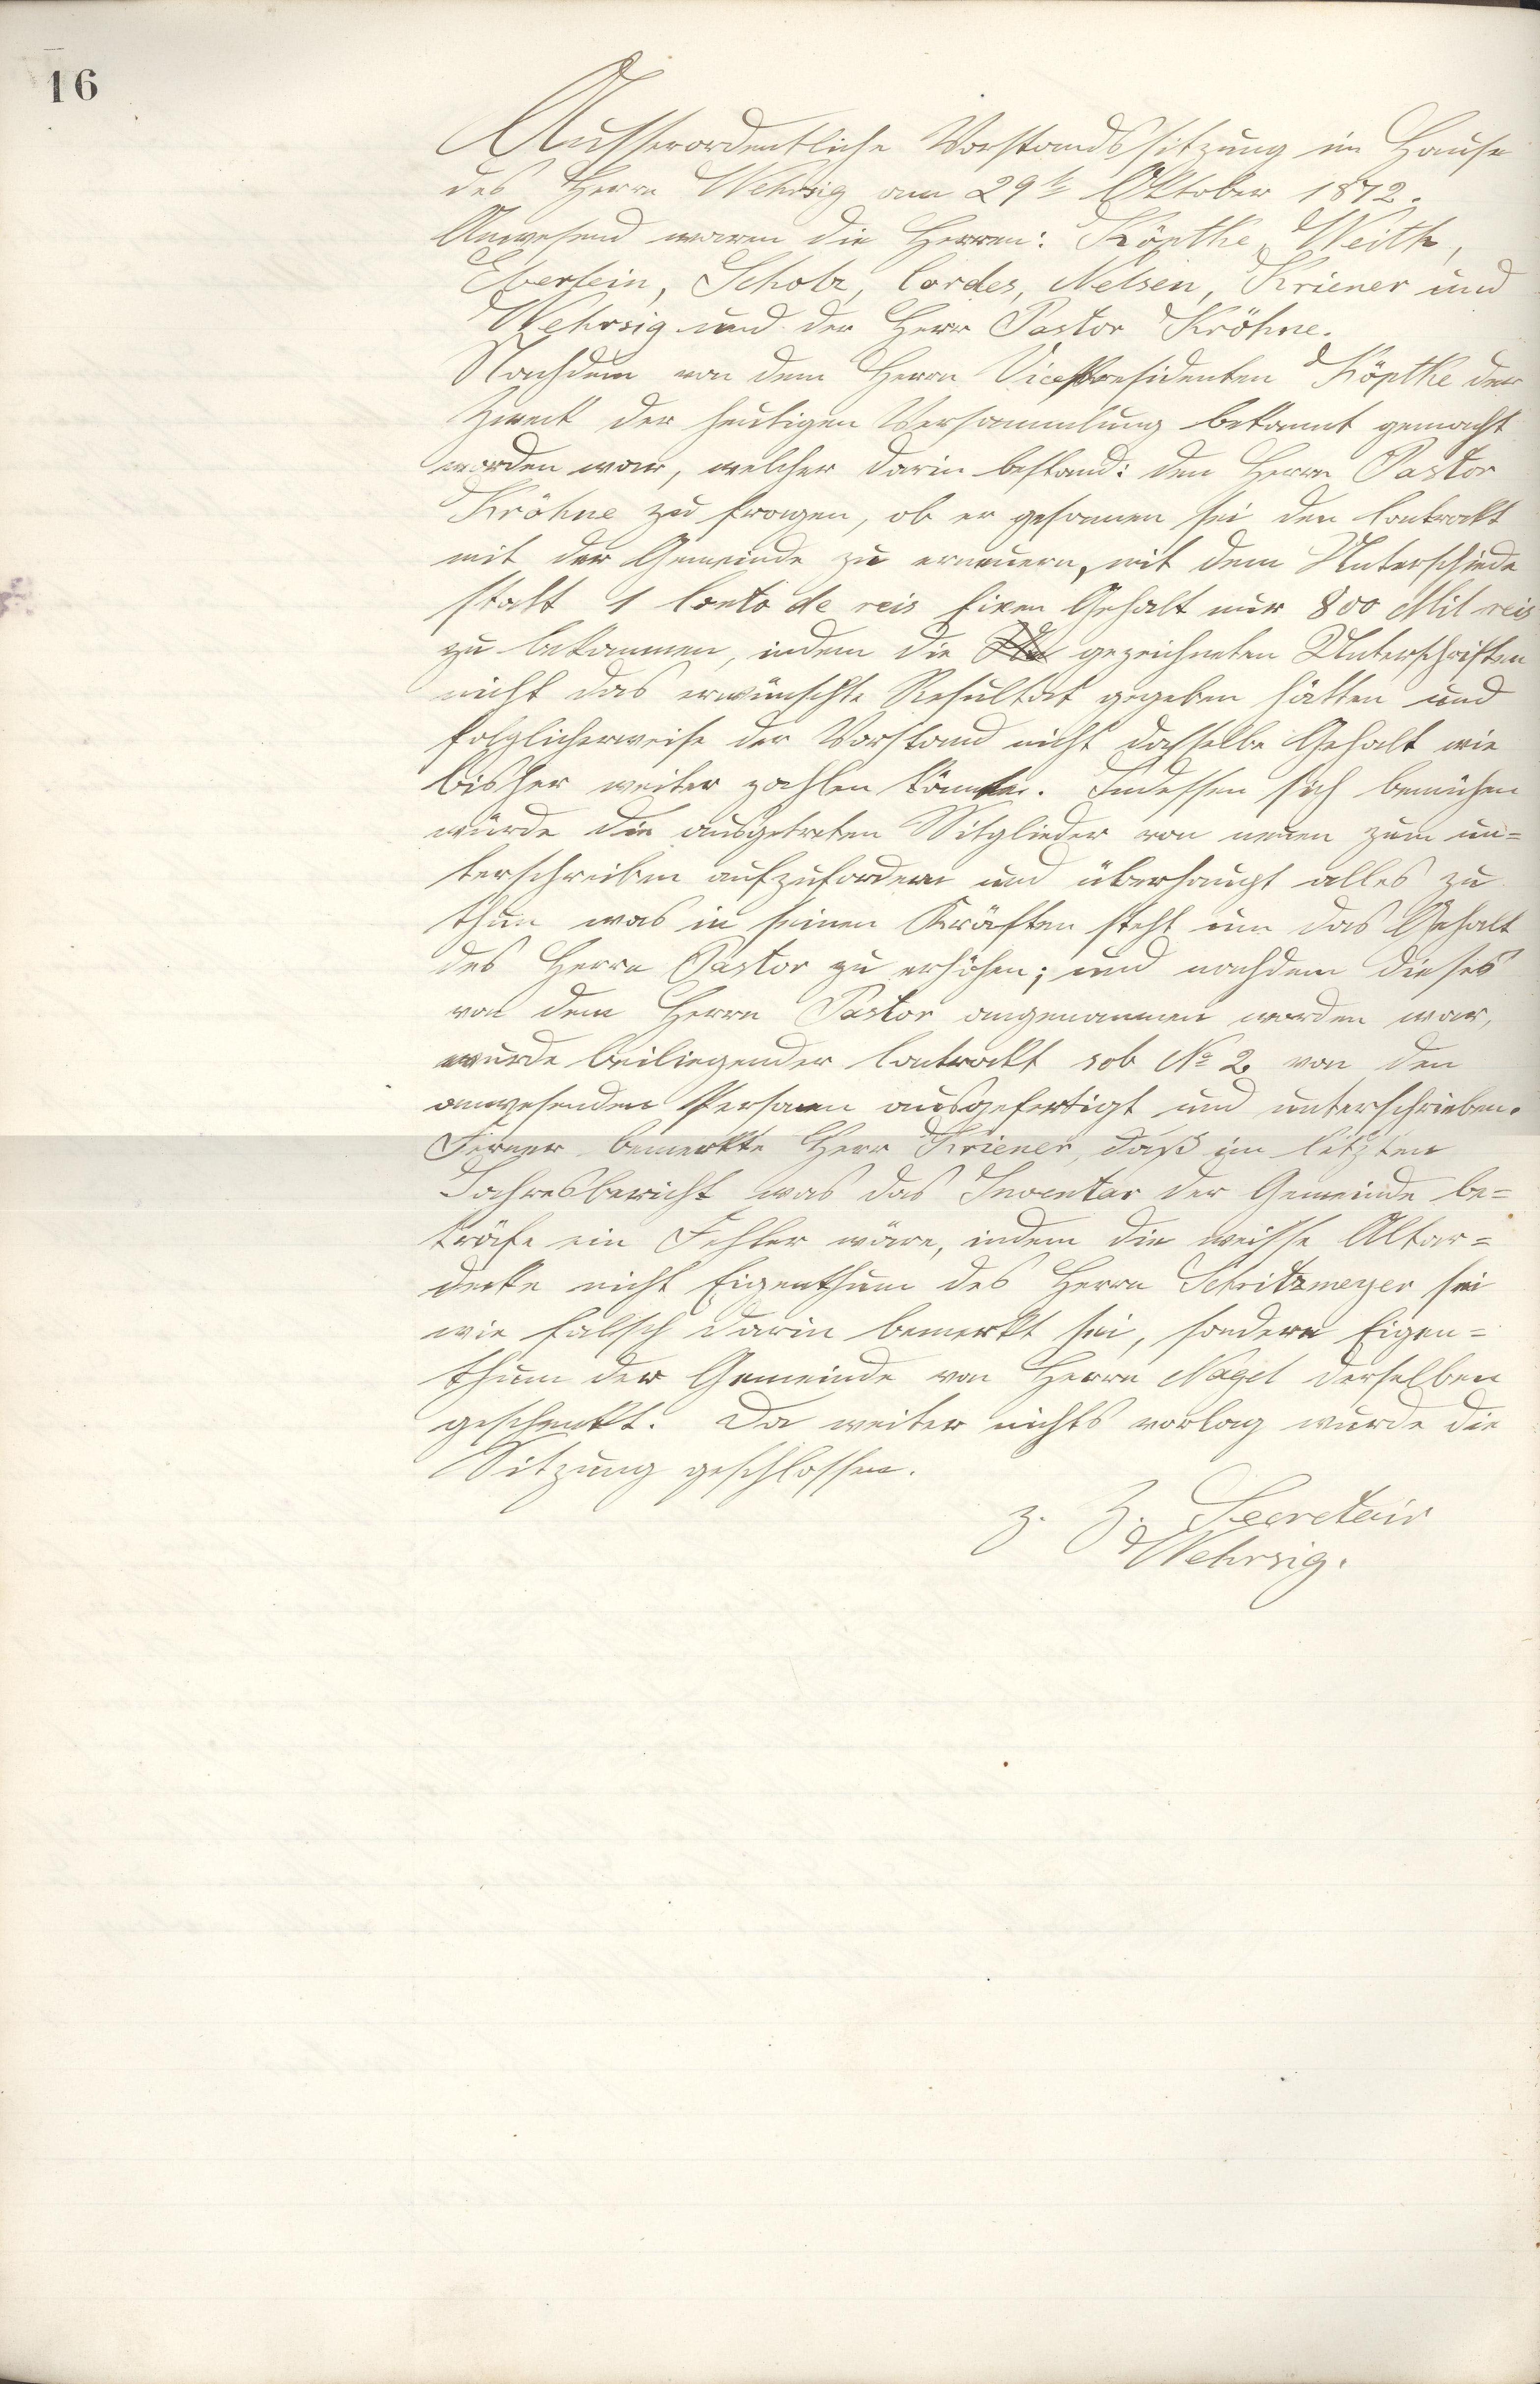 16
Ausserordentliche Vorstandssitzung im Hause
des Herrn Wehrsig am 29t. Oktober 1872.
Anwesend waren die Herren: Köpthe, Weith,
Eberlein, Scholz, Cordes, Nelsen, Kriener und
Wehrsig und der Herr Pastor Kröhne.
Nachdem von dem Herrn Vicepresidenten Köpthe der
Zweck der heutigen Versammlung bekannt gemacht
worden war, welcher darin bestand: den Herrn Pastor
Kröhne zu fragen, ob er gesonnen sei den Contrakt
mit der Gemeinde zu erneuern, mit dem Unterschiede
statt 1 Conto de reis fixen Gehalt nur 800 Mil reis
zu bekommen, indem die gezeichneten Unterschriften
nicht das erwünschte Resultat gegeben hätten und
folglicherweise der Vorstand nicht dasselbe Gehalt wie
bisher weiter zahlen könnte. Indessen sich bemühen
würde die ausgetreten Mitglieder von neuen zum un=
terschreiben aufzufordern und überhaupt alles zu
thun was in seinen Kräften steht um das Gehalt
des Herrn Pastor zu erhöhen; und nachdem dieses
von dem Herrn Pastor angenommen worden war,
wurde beiliegender Contrakt sob No 2 von den
anwesenden Personen ausgefertigt und unterschrieben.
Ferner bemerkte Herr Kriener, daß im letzten
Jahresbericht was das Inventar der Gemeinde be=
träfe ein Fehler wäre, indem die weisse Altar=
decke nicht Eigenthum des Herrn Schritzmeyer sei
wie falsch darin bemerkt sei, sondern Eigen=
thum der Gemeinde von Herrn Nagel derselben
geschenkt. Da weiter nichts vorlag wurde die
Sitzung geschlossen.
z. Z. Secretair
Wehrsig.